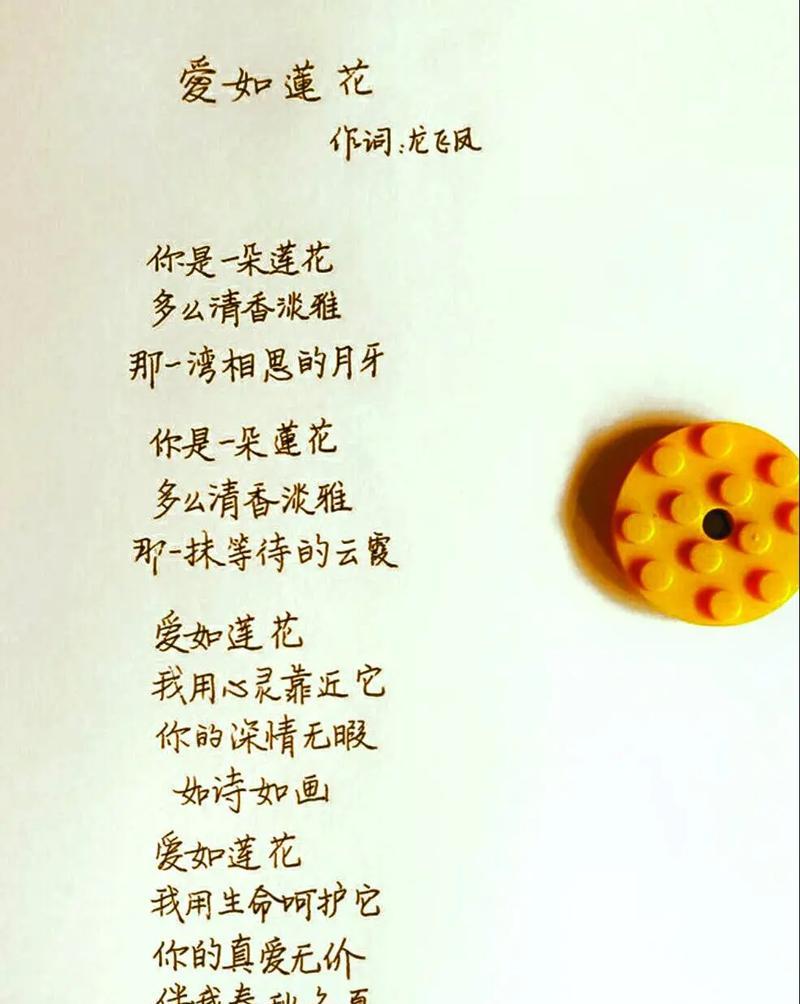 愛如蓮花
作词:龙飞凤
你是一朵莲花
多么清香淡雅
那一湾相思的月牙
你是一朵蓮花
多么清香淡雅
那一抹等待的云霞
爱如莲花
我用心灵靠近它
你的深情无暇
如诗如画
爱如莲花
我用生命呵护它
你的真爱无价
伴我春秋冬夏